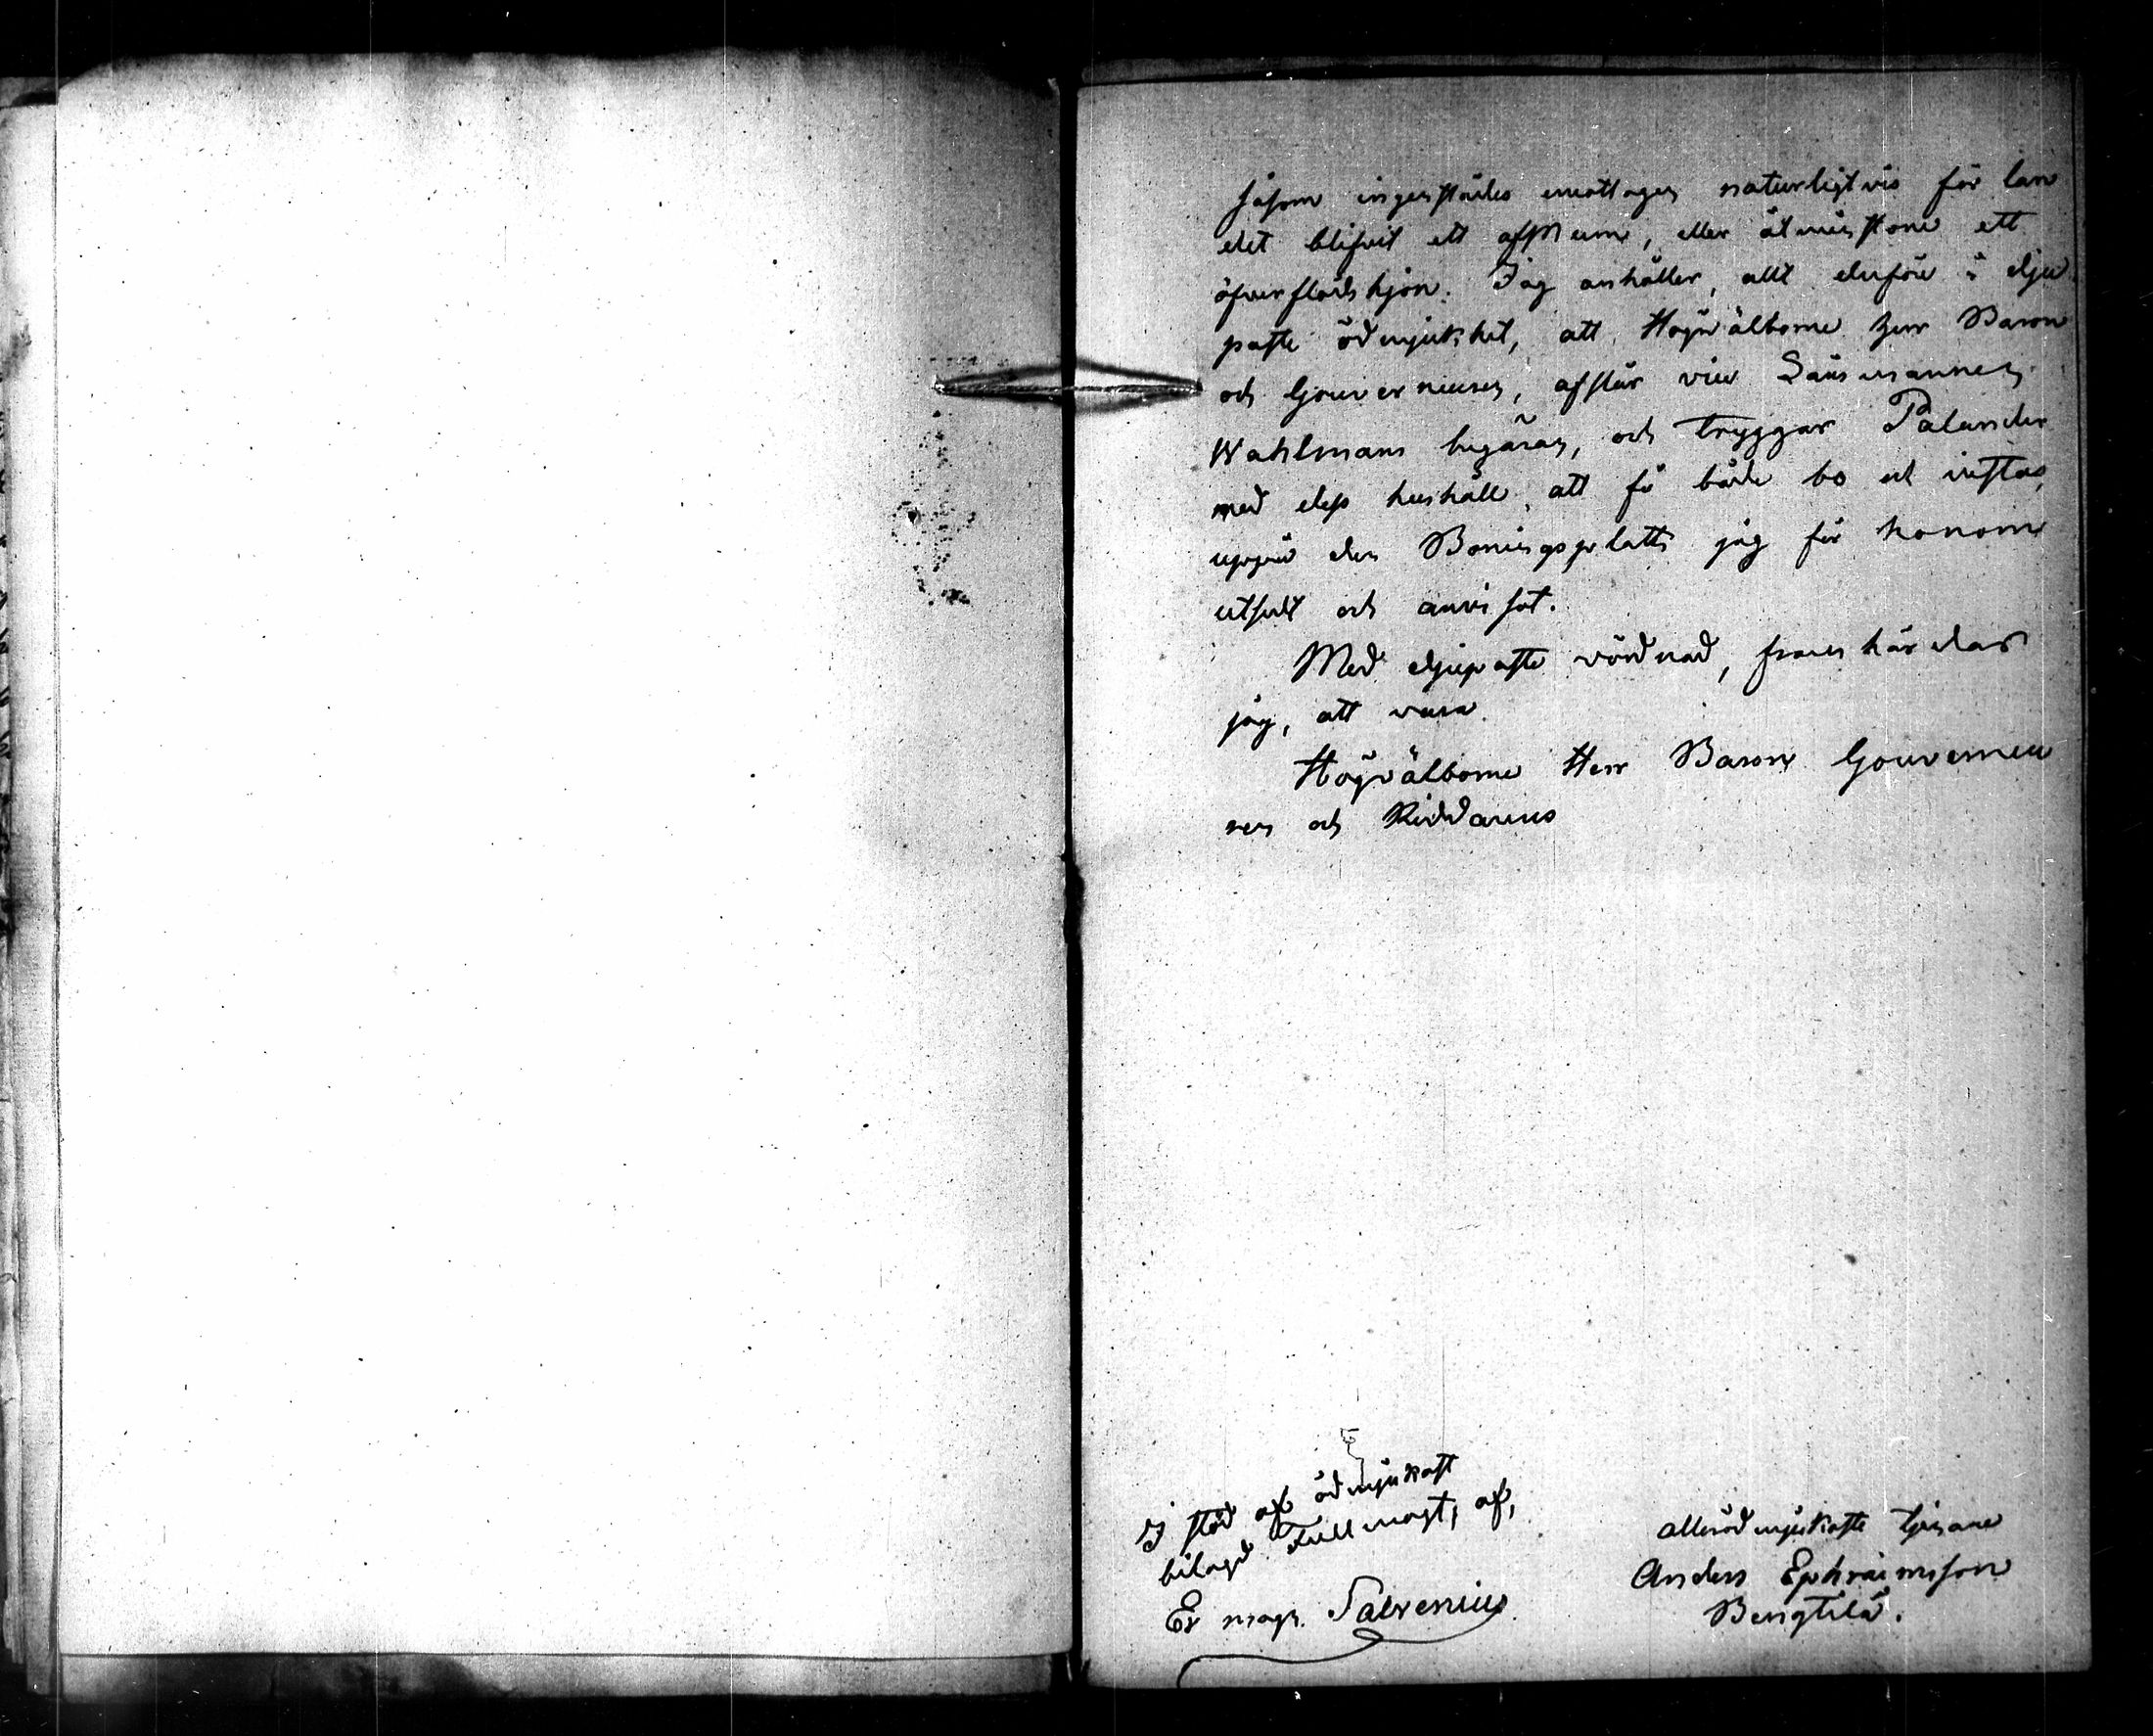 såsom ingenstädes emottagen naturligtvis för lan
det blifvit ett afskum, eller åtminstone ett
öfverflödshjon. Jag anhåller, allt derföre i dju
paste ödmjukhet, att Högvälborne herr Baron
och Gouverneuren, afslår Länsmannen
Wahlmans begäran, och tryggar Palander
med dess hushåll, att få både bo och vistas,
uppå den Boningsplatts jag för honom
utsedt och anvisat.
Med djupaste vördnad, framhärdar
jag, att vara
Högvälborne Herr Baron Gouverneu
ren och Riddarens
I stöd af ödmjukast
bilagd Fullmagt, af,
Er magn. Salvenius
allerödmjukaste tjenare
Anders Ephraimsson
Bengtilä.